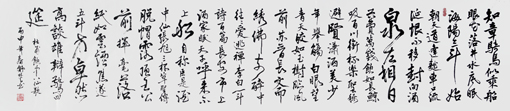 知章騎馬似乘船
眼花落井水底眠
汝陽三斗始
朝天道逢麴車口流
涎恨不移封向酒
泉左相日
興費萬錢飲如長鯨
吸百川銜杯樂聖稱
避賢宗之瀟灑美少
年舉觴白眼望青天
皎如玉樹臨風
前蘇晉長齋
繡佛前醉中
往往愛逃禪李白一斗
詩百篇長安市上
酒家眠天子呼來不
上船自稱臣是酒
中仙張旭三杯草聖傳
脫帽露頂王公
前揮毫落
紙如雲煙焦遂
五斗方卓然
高談雄辯驚四
筵
杜甫飲中八仙歌